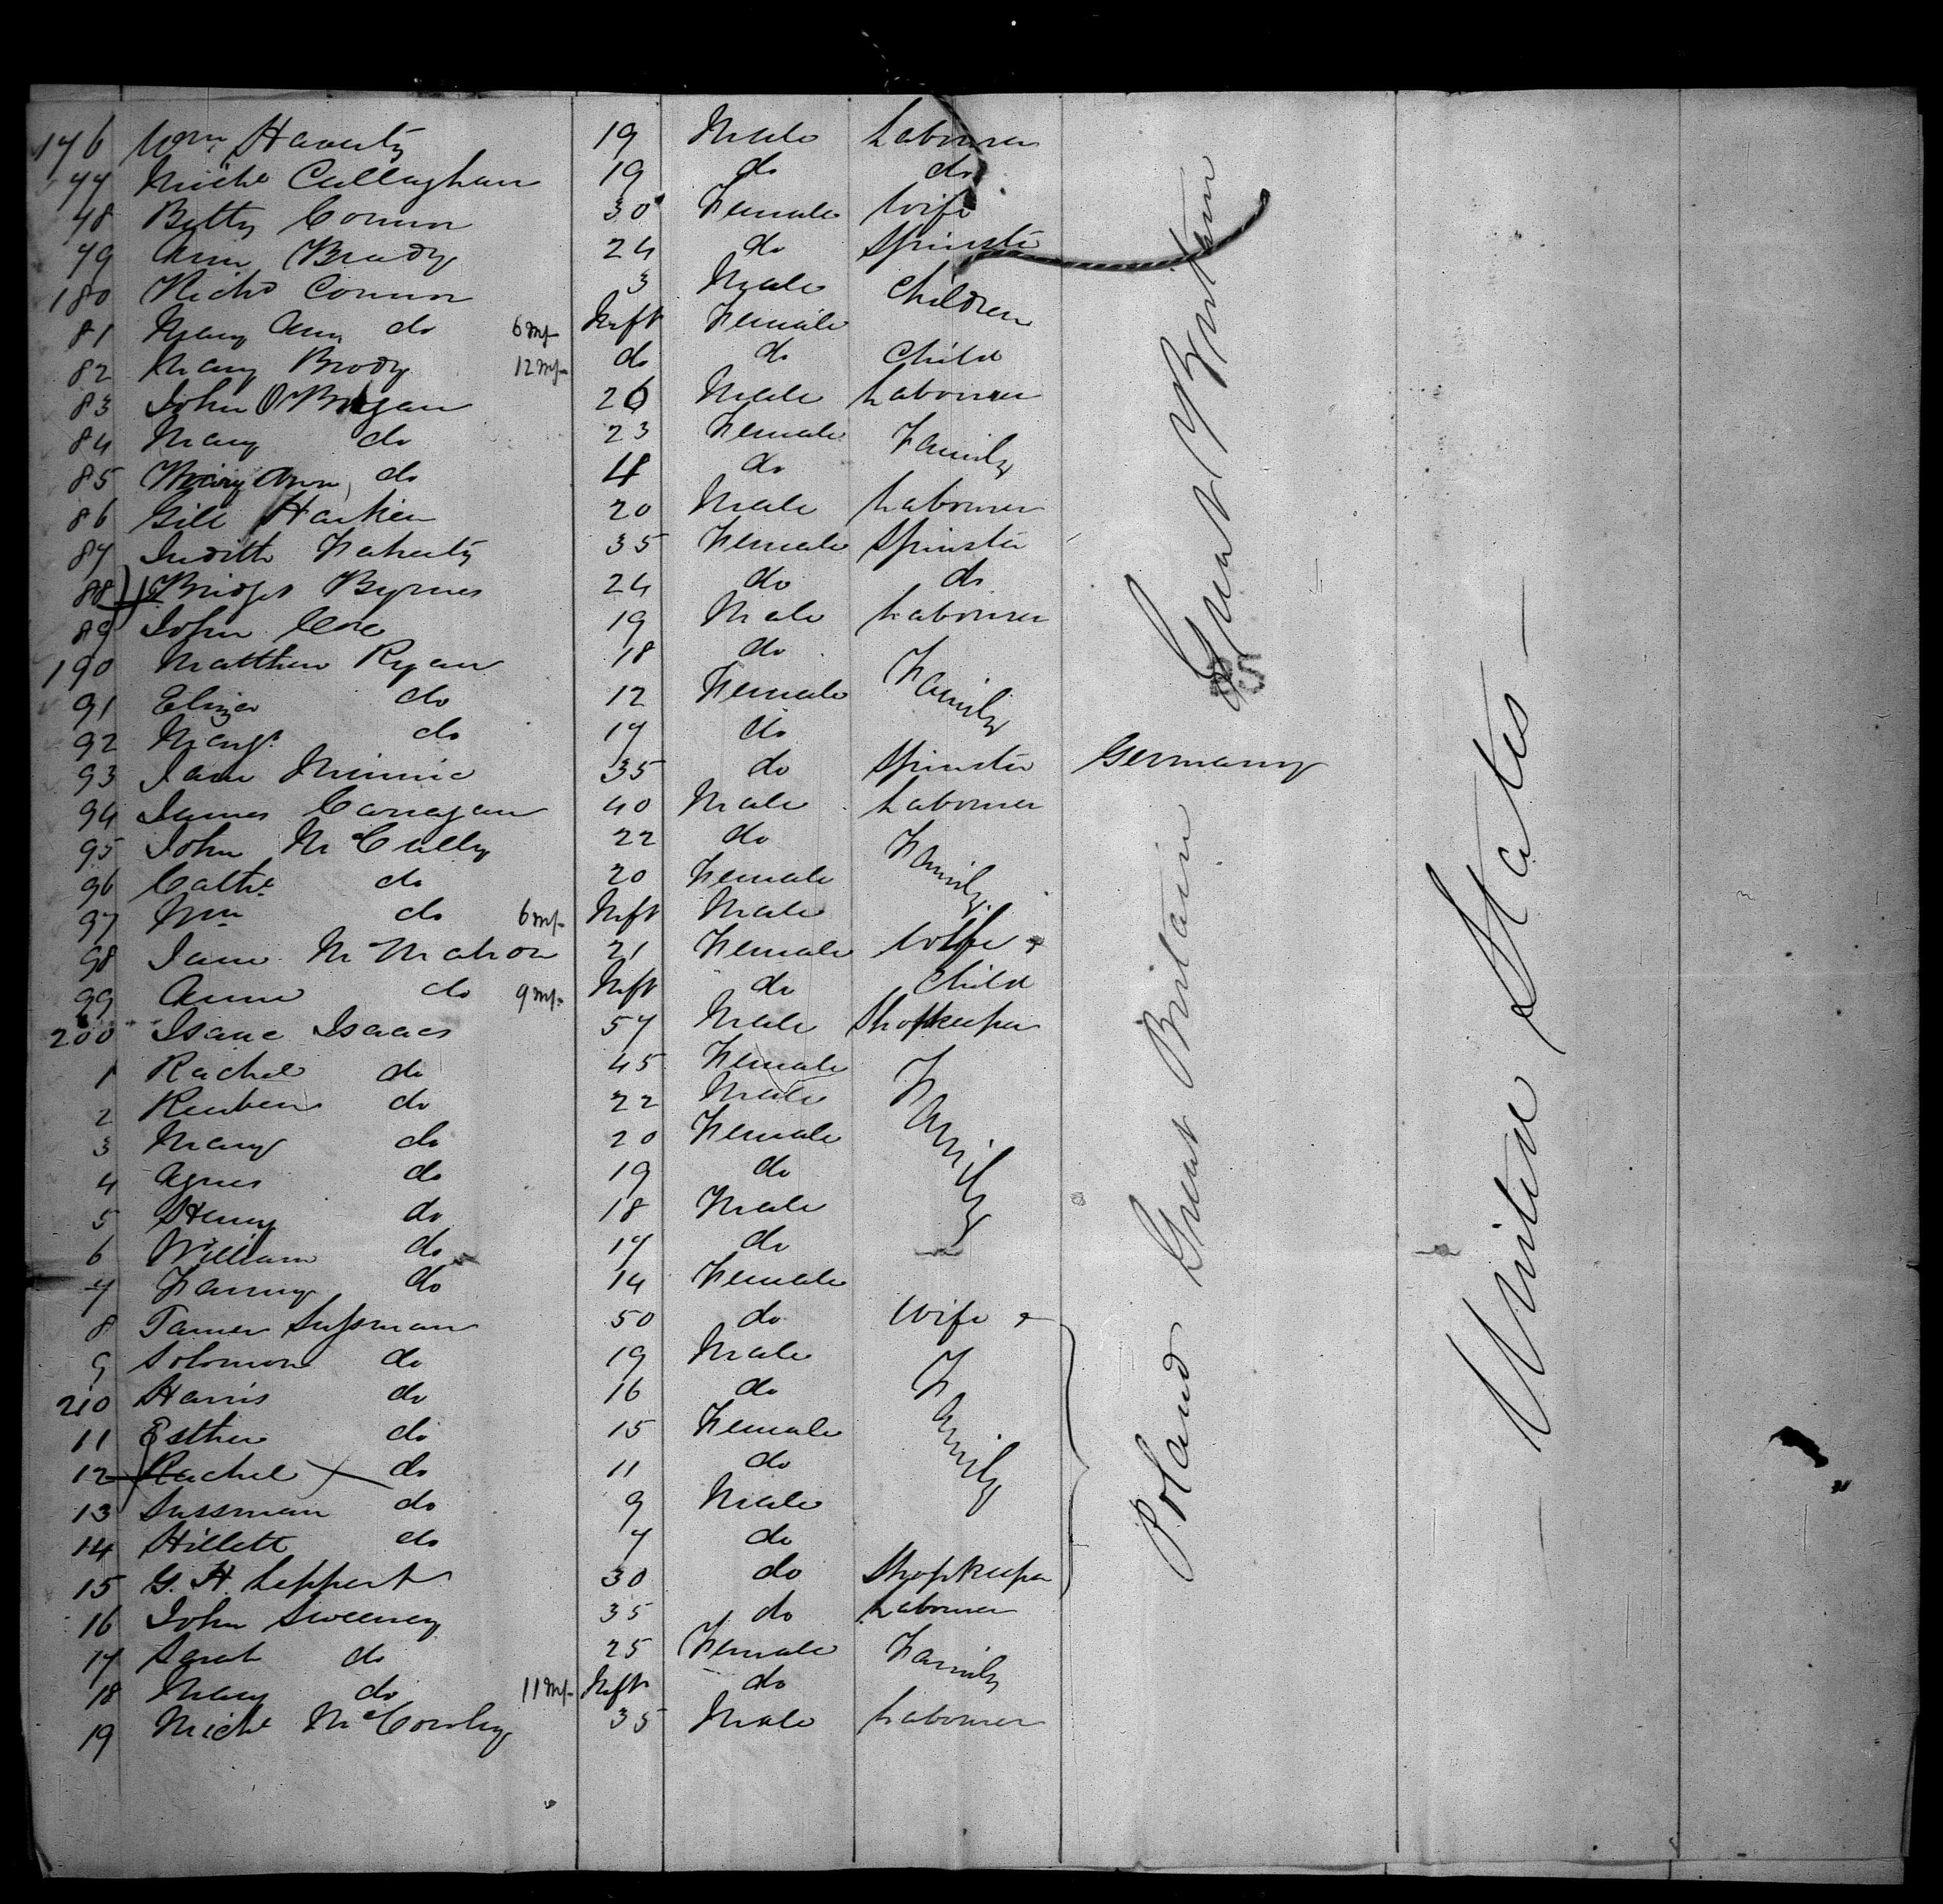 176 Wm Haverty 19 Male Labourer
77 Michl Callaghan 19 do do
78 Betty Connor 30 Female Wife
79 Ann Brady 24 do Spinster
180 Richd Connor 3 Male Children
81 Mary Ann do 6 ms Inft Female
82 Mary Brody 12 ms do do Child
83 John 26 Male Labourer
84 Mary do 23 Female Family
85 Mary Ann do do
86 Gill Harkin 20 Male Labourer
87 Judith Faherty 35 Female Spinster
88 Bridget Byrnes 24 do do
89 John 19 Male Labourer
190 Matthew Ryan 18 do Family
91 Eliza do 12 Female
92 Margt do 17 do
93 Jane 35 do Spinster Germany
94 James Corragan 40 Male Labourer
95 John McCully 22 do Family
96 Cathe do 20 Female
97 Wm do 6 ms Inft Male
98 Jane McMahon 21 Female Wife &
99 Anne do 9 ms Inft do Child
200 Isaac Isaacs 57 Male Shopkeeper
1 Rachel do 45 Female Family
2 Reuben do 22 Male
3 Mary do 20 Female
4 Agnes do 19 do
5 Henry do 18 Male
6 William do 17 do
7 Fanny do 14 Female
8 Sussman 50 do Wife &
9 Solomon do 19 Male Family
210 Harris do 16 do
11 Esther do 15 Female
12 Rachel do 11 do
13 Sussman do 9 Male
14 Hillett do 7 do
15 G. H. Leppert 30 do Shopkeeper
16 John Sweeney 35 do Labourer
17 Sarah do 25 Female Family
18 Mary do 11 ms Inft do
19 Michl 35 Male Labourer
Great Britain
Great Britain
Poland
United States